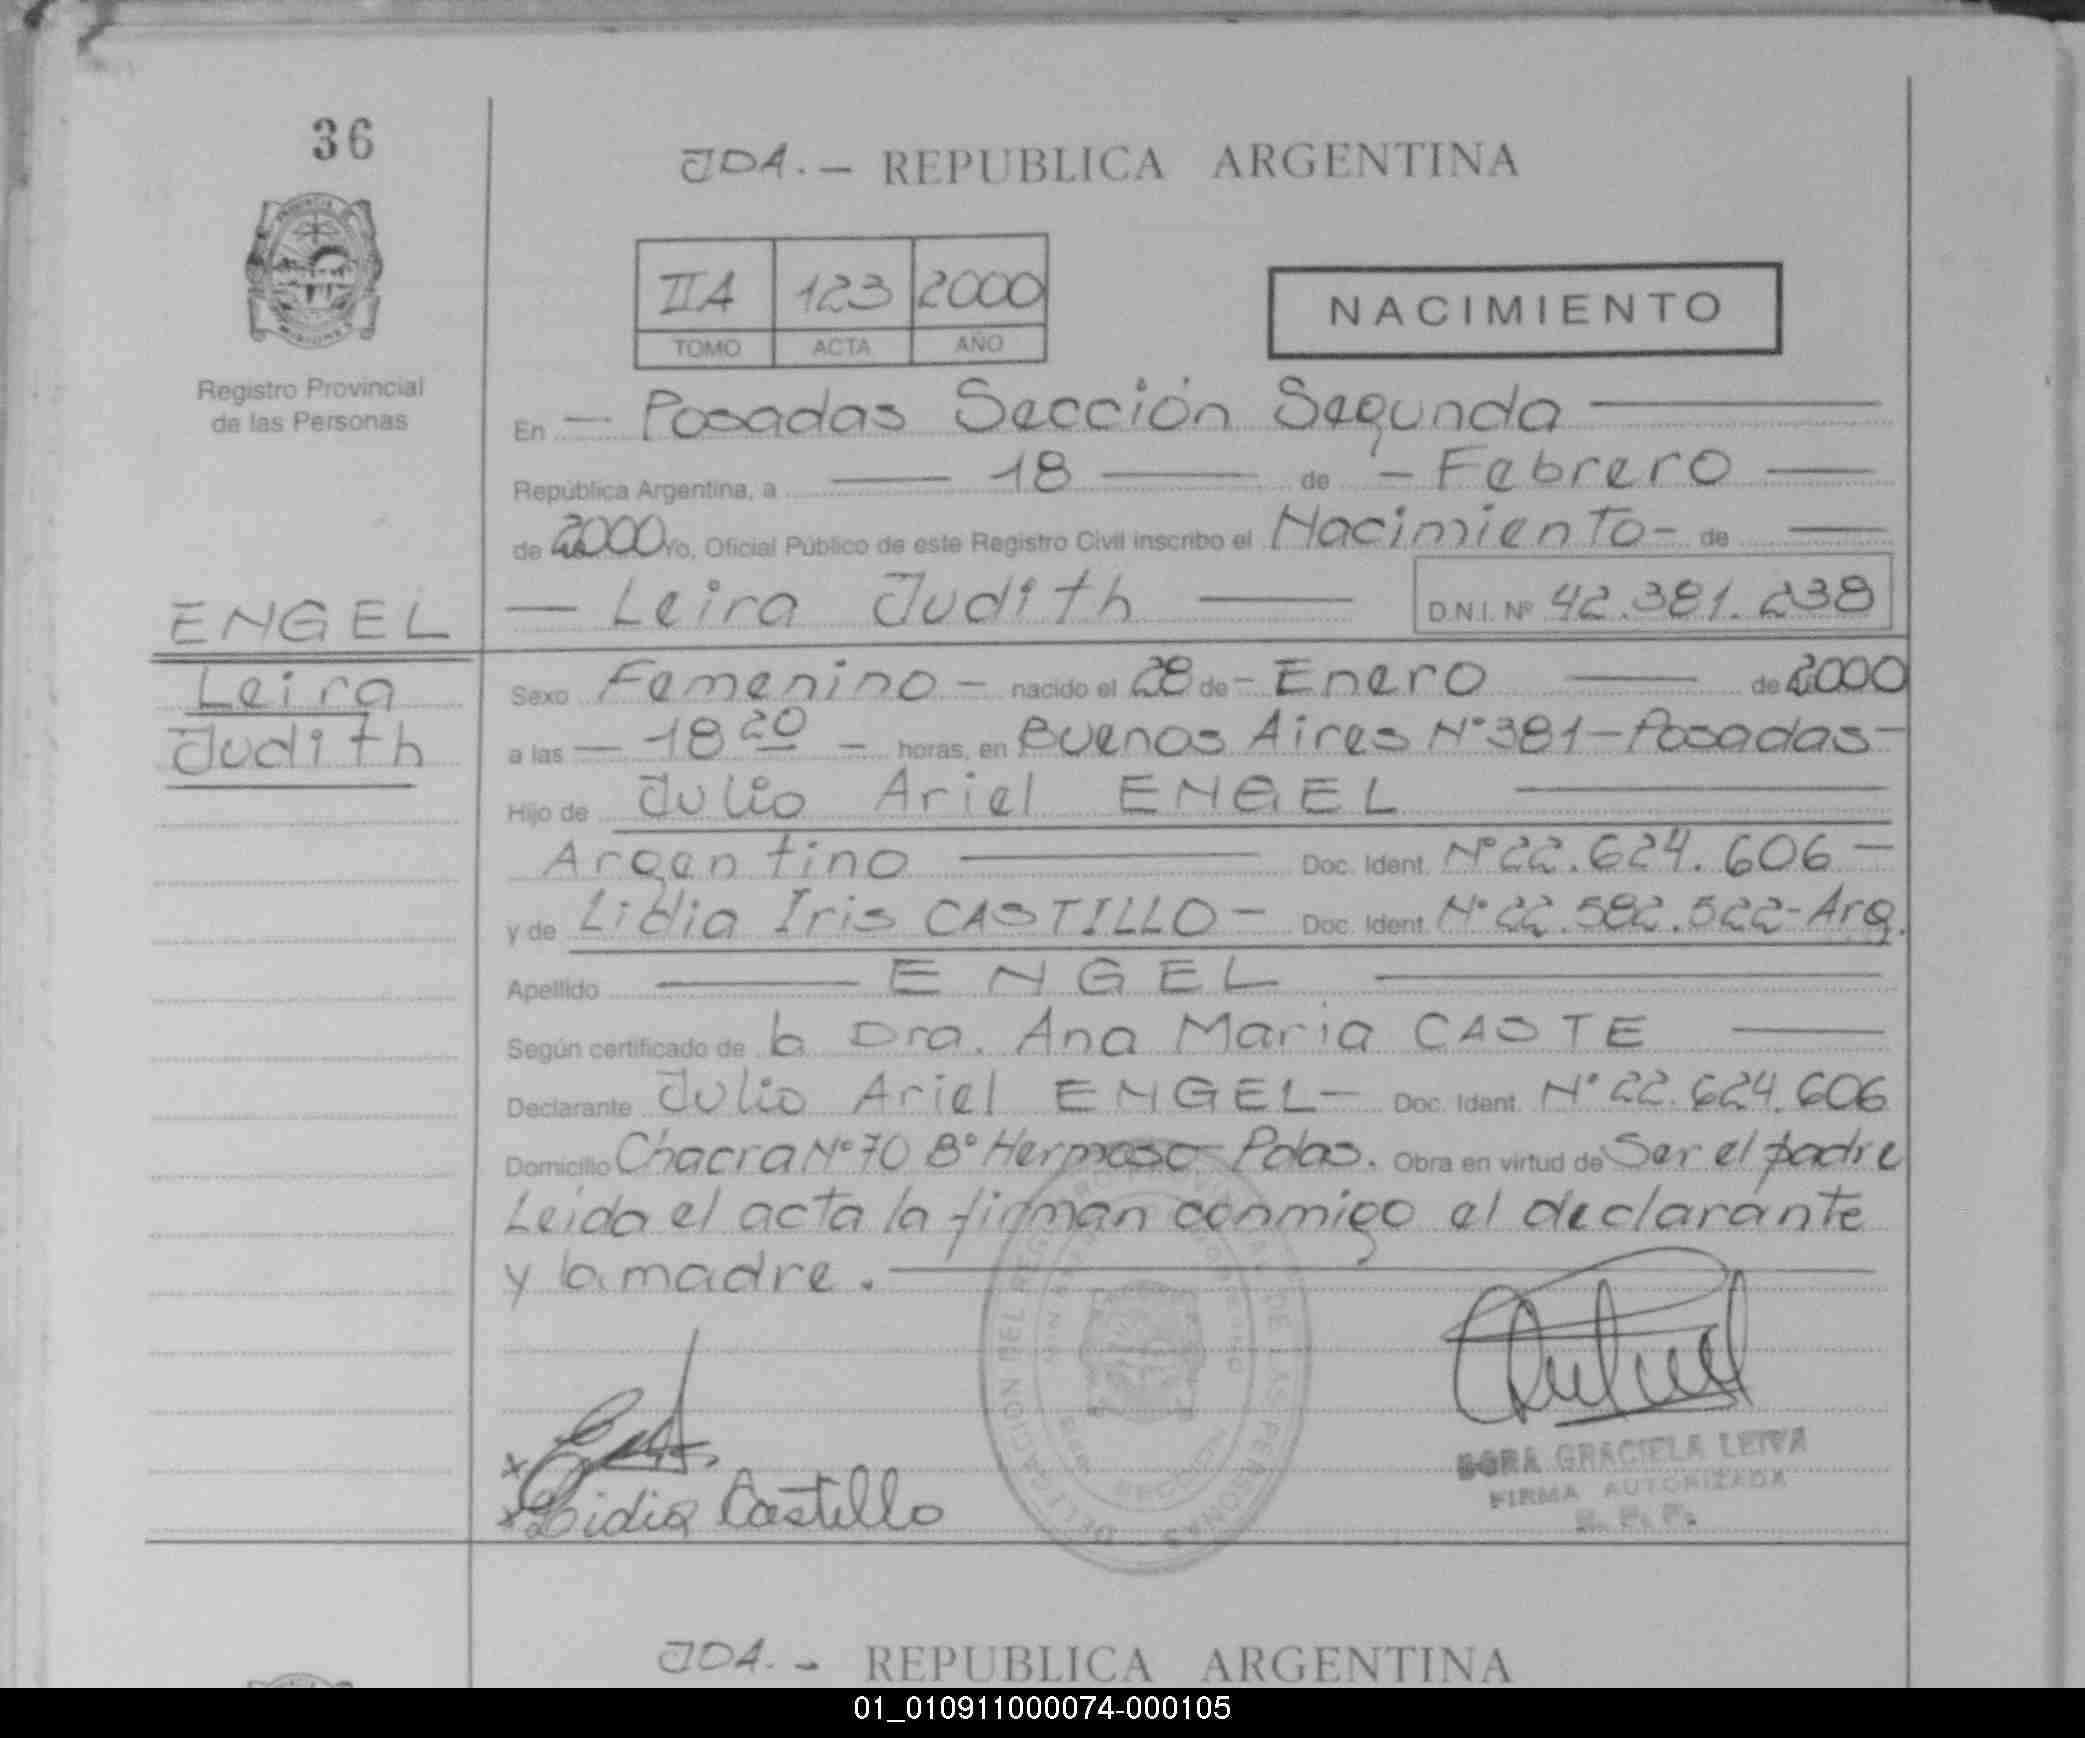 36
JDA. - REPUBLICA ARGENTINA
IIA 123 2000
TOMO ACTA AÑO
NACIMIENTO
Registro Provincial
de las Personas
En - Posadas Sección Segunda
República Argentina, a 18 de - Febrero
de 2000 Yo, Oficial Público de este Registro Civil inscribo el Nacimiento - de
Leira Judith D.N.I. Nº 42.381.238
ENGEL
Leira
Judith
Sexo Femenino - nacido el 28 de - Enero de 2000
a las - 18 20 - horas, en Buenos Aires Nº 381 - Posadas -
Hijo de Julio Ariel ENGEL
Argentino Doc. Ident. Nº 22.624.606 -
y de Lidia Iris CASTILLO - Doc. Ident. Nº 22.582.522 - Arg.
Apellido ENGEL
Según certificado de la Dra. Ana Maria CASTE
Declarante Julio Ariel ENGEL - Doc. Ident. Nº 22.624.606
Domicilio Chacra Nº 70 Bº Hermoso - Pdas. Obra en virtud de Ser el padre
Leída el acta la firman conmigo el declarante
y la madre.
DELEGACION DEL REGISTRO PROVINCIAL DE LAS PERSONAS
SECCION
Lidia Castillo
DORA GRACIELA LEIVA
FIRMA AUTORIZADA
R. P. P.
JDA. - REPUBLICA ARGENTINA
01_010911000074-000105